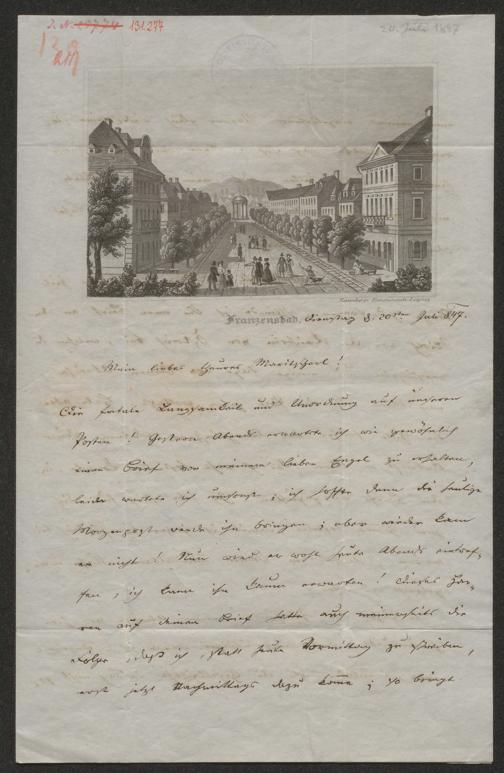 J. N. 131.277
129
20. Juli 1847
Franzensbad, Dienstag d. 20sten Juli 847.
Mein liebes theures Maritscherl!
Die fatale Langsamkeit und Unordnung auf unseren
Posten! Gestern Abends erwartete ich wie gewöhnlich
einen Brief von meinem lieben Engel zu erhalten,
leider wartete ich umsonst; ich hoffte dann die heutige
Morgenpost werde ihn bringen; aber wieder kam
er nicht! Nun wird er wohl heute Abends eintref-
fen, ich kann ihn kaum erwarten! Dieses Har-
ren auf deinen Brief hatte auch meinerseits die
Folge, daß ich, statt heute Vormittag zu schreiben,
erst jetzt Nachmittags dazu komme; so bringt